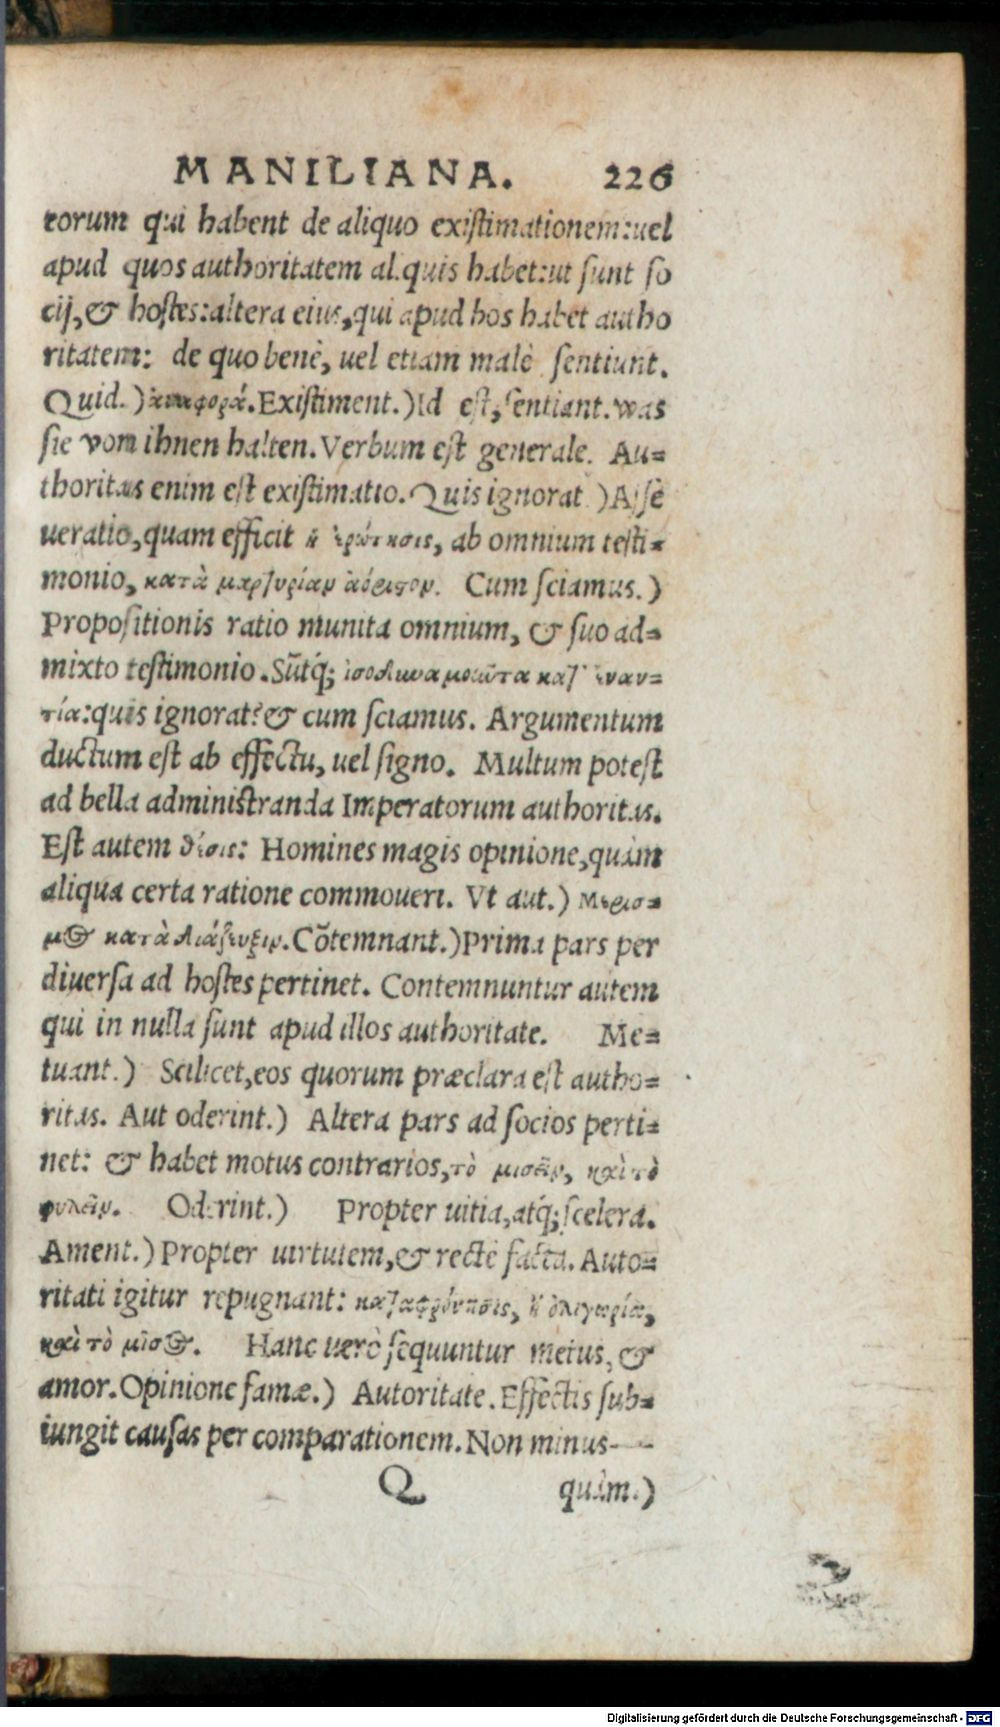 MANILIANA. 226
eorum qui habent de aliquo existimationem: uel
apud quos authoritatem aliquis habet: ut sunt so
cij, & hostes: altera eius, qui apud hos habet autho
ritatem: de quo benè, uel etiam malè sentiunt.
Quid.) ἀναφορά. Existiment.) Id est, sentiant. was
sie vom ihnen halten. Verbum est generale. Au=
thoritas enim est existimatio. Quis ignorat.) Assè
ueratio, quam efficit ἡ ἐρώτησις, ab omnium testi=
monio, κατὰ μαρτυρίαν ἀόριστον. Cum sciamus.)
Propositionis ratio munita omnium, & suo ad=
mixto testimonio. Sũtq́; ἰσοδυναμοῦντα κατ' ἐναν=
τία: quis ignorat? & cum sciamus. Argumentum
ductum est ab effectu, uel signo. Multum potest
ad bella administranda Imperatorum authoritas.
Est autem θέσις: Homines magis opinione, quàm
aliqua certa ratione commoueri. Vt aut.) Μερισ=
μὸς κατὰ διάζευξιν. Cõtemnant.) Prima pars per
diuersa ad hostes pertinet. Contemnuntur autem
qui in nulla sunt apud illos authoritate. Me=
tuant.) Scilicet, eos quorum præclara est autho=
ritas. Aut oderint.) Altera pars ad socios perti=
net: & habet motus contrarios, τὸ μισεῖν, καὶ τὸ
φιλεῖν. Oderint.) Propter uitia, atq́; scelera.
Ament.) Propter uirtutem, & rectè facta. Auto=
ritati igitur repugnant: καταφρόνησις, ἢ ὀλιγωρία,
καὶ τὸ μῖσος. Hanc uerò sequuntur metus, &
amor. Opinione famæ.) Autoritate. Effectis sub=
iungit causas per comparationem. Non minus—
Q quàm.)
Digitalisierung gefördert durch die Deutsche Forschungsgemeinschaft - DFG